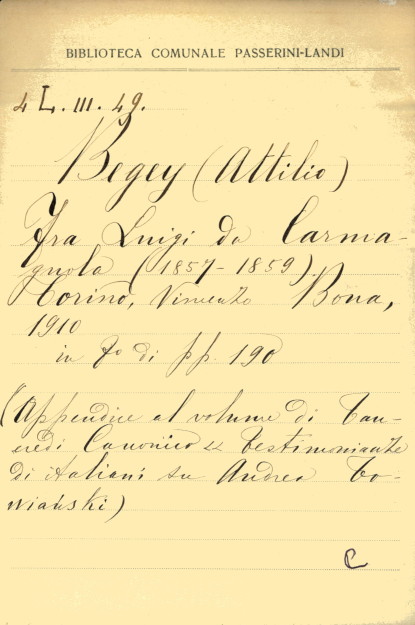 BIBLIOTECA COMUNALE PASSERINI-LANDI
4 L. III. 49.
Begey (Attilio)
Fra Luigi da Carma-
gnola (1857-1859).
Torino, Vincenzo Bona,
1910
in 8º di pp. 190
(Appendice al volume di Tan-
credi Canonico « Testimonianze
di italiani su Andrea To-
wiański)
C